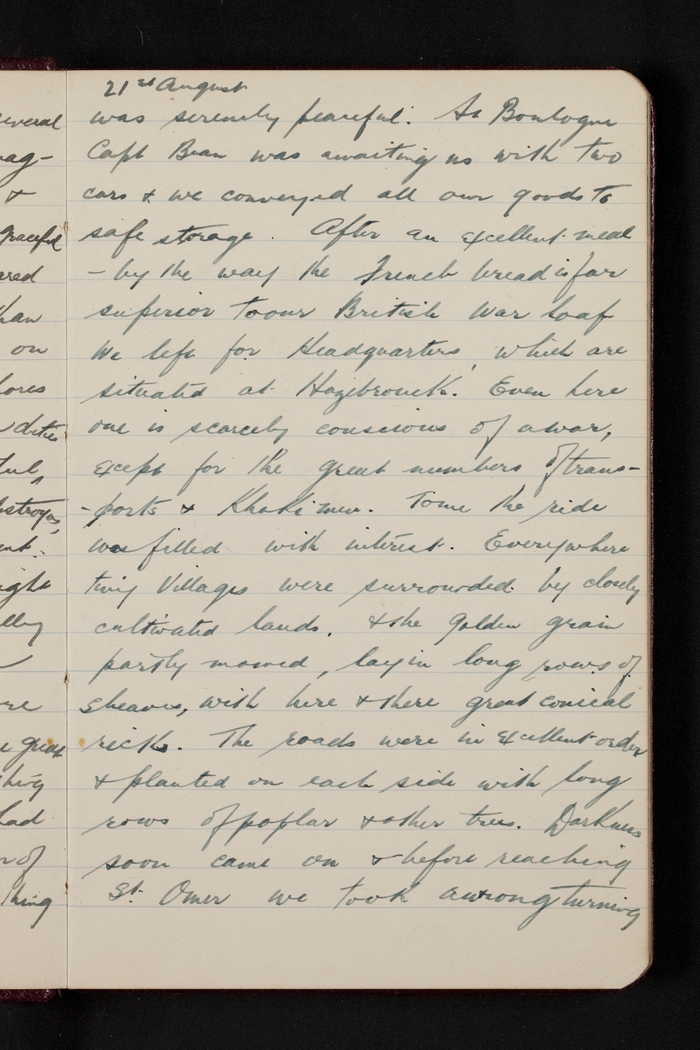 21st August
was serenely peaceful. At Boulogne
Capt Bean was awaiting us with two
cars & we conveyed all our goods to
safe storage. After an excellent meal
- by the way the French bread is far
superior to our British War loaf
we left for Headquarters, which are
situated at Hazebrouck. Even here
one is scarcely conscious of a war,
except for the great numbers of trans-
-ports & Khaki men. To me the ride
was filled with interest. Everywhere
tiny Villages were surrounded by closely
cultivated lands. & the Golden grain
partly mowed, lay in long rows of
sheaves, with here & there great conical
ricks. The roads were in excellent order
& planted on each side with long
rows of poplar & other trees. Darkness
soon came on & before reaching
St. Omer we took a wrong turning
everal
ag-
&
graceful
ared
han
on
hores
duties
ful,
estroyer,
ent.
ight
lley
re
e great
hing
had
r of
thing